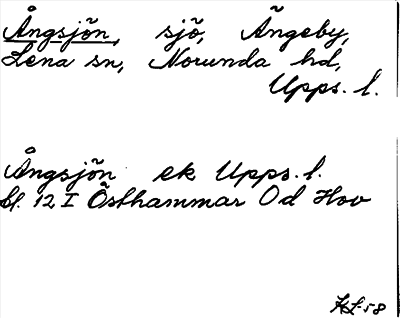 Ångsjön, sjö, Ängeby,
Lena sn, Norunda hd,
Upps. l.
Ångsjön ek Upps. l.
bl. 12 I Östhammar Od Hov